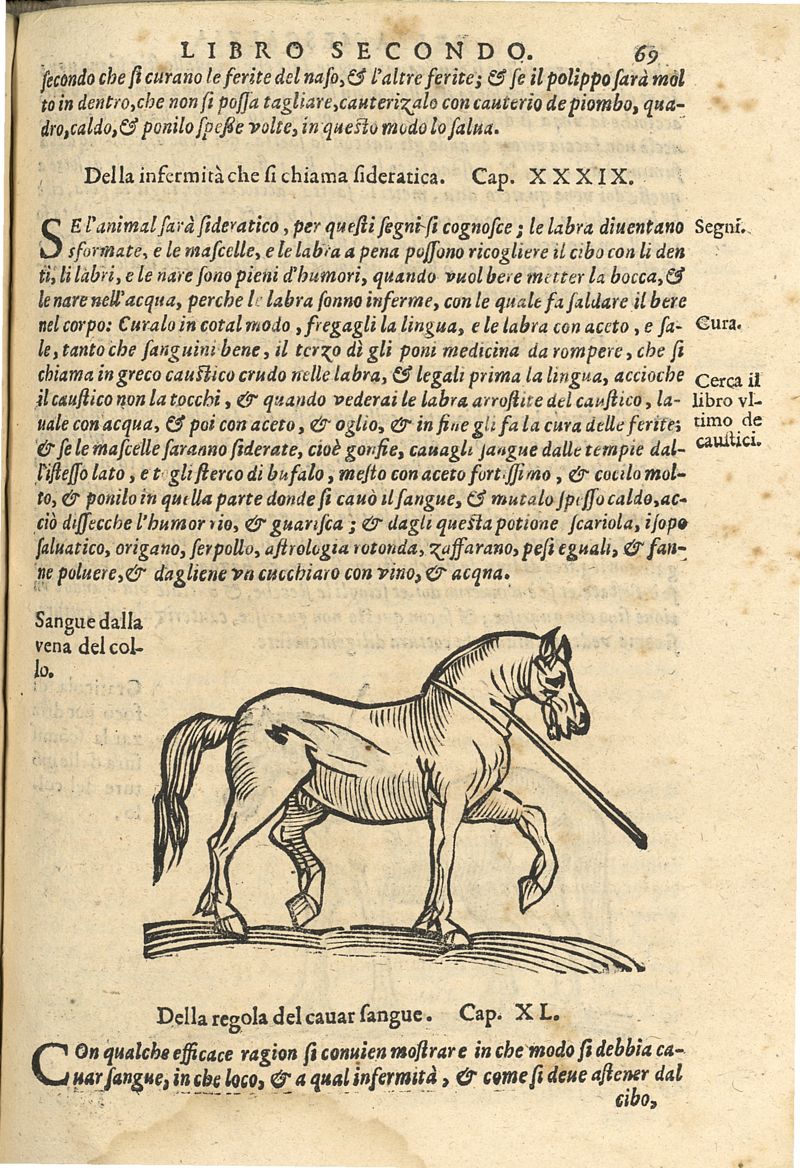 LIBRO SECONDO. 69
ſecondo che ſi curano le ferite del naſo, & l'altre ferite; & ſe il polippo ſarà mol
to in dentro, che non ſi poſſa tagliare, cauterizalo con cauterio de piombo, qua-
dro, caldo, & ponilo ſpeſſe volte, in queſto modo lo ſalua.
Della infermità che ſi chiama ſideratica. Cap. XXXIX.
SE l'animal ſarà ſideratico, per queſti ſegni ſi cognoſce; le labra diuentano
Segni.
sformate, e le maſcelle, e le labra a pena poſſono ricogliere il cibo con li den
ti, li labri, e le nare ſono pieni d'humori, quando vuol bere metter la bocca, &
le nare nell'acqua, perche le labra ſonno inferme, con le quale fa ſaldare il bere
nel corpo: Curalo in cotal modo, fregagli la lingua, e le labra con aceto, e ſa-
Cura.
le, tanto che ſanguini bene, il terzo dì gli poni medicina da rompere, che ſi
chiama in greco cauſtico crudo nelle labra, & legali prima la lingua, accioche
Cerca il
il cauſtico non la tocchi, & quando vederai le labra arroſtite del cauſtico, la-
libro vl-
uale con acqua, & poi con aceto, & oglio, & in fine gli fa la cura delle ferite;
timo de
& ſe le maſcelle ſaranno ſiderate, cioè gonfie, cauagli ſangue dalle tempie dal-
cauſtici.
l'iſteſſo lato, e togli ſterco di bufalo, meſto con aceto fortiſſimo, & cocilo mol-
to, & ponilo in quella parte donde ſi cauò il ſangue, & mutalo ſpeſſo caldo, ac-
ciò diſſecche l'humor rio, & guariſca; & dagli queſta potione ſcariola, iſopo
ſaluatico, origano, ſerpollo, aſtrologia rotonda, zaffarano, peſi eguali, & fan-
ne poluere, & dagliene vn cucchiaro con vino, & acqna.
Sangue dalla
vena del col-
lo.
Della regola del cauar ſangue. Cap. XL.
COn qualche efficace ragion ſi conuien moſtrare in che modo ſi debbia ca-
uar ſangue, in che loco, & a qual infermità, & come ſi deue aſtener dal
cibo,